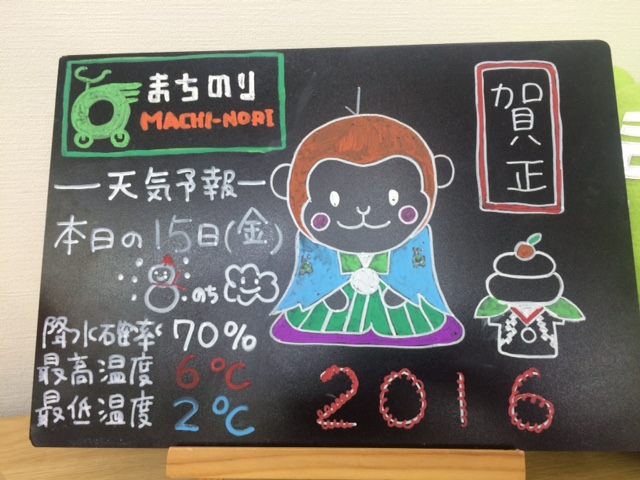 まちのり
MACHI-NORI
ー天気予報ー
本日の15日(金)
のち
降水確率 70%
最高温度 6℃
最低温度 2℃
賀正
2016